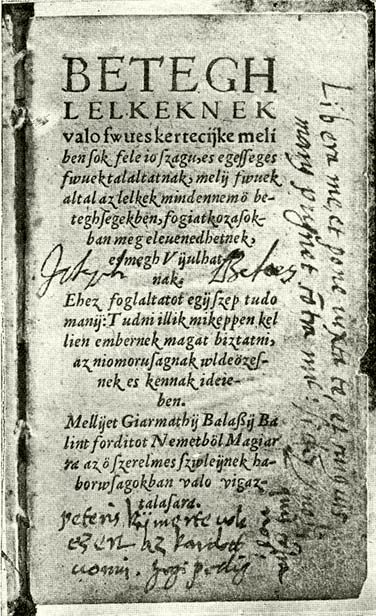 BETEGH
LELKEKNEK
valo fwues kertecijke meli
ben ſok fele io szagu, es egeſſeges
fwuek talaltatnak, melij fwuek
altal az lelkek mindennemö be-
teghſegekben, fogiatkozaſok-
ban megeleuenedhetnek,
es megh Vijulhat-
nak.
Ehez foglaltatot egij ſzep tudo
manij: Tudni illik mikeppen kel
lien embernek magat biztatni,
az niomoruſagnak wldeözeſ-
nek es kennak ideie-
ben.
Mellijet Giarmathij Balaſſij Ba
lint forditot Nemetböl Magiar
ra az ö ſzerelmes ſzwleijnek ha-
borwſagokban valo vigaz-
talaſara.
Libera me et pone iuxta te, et